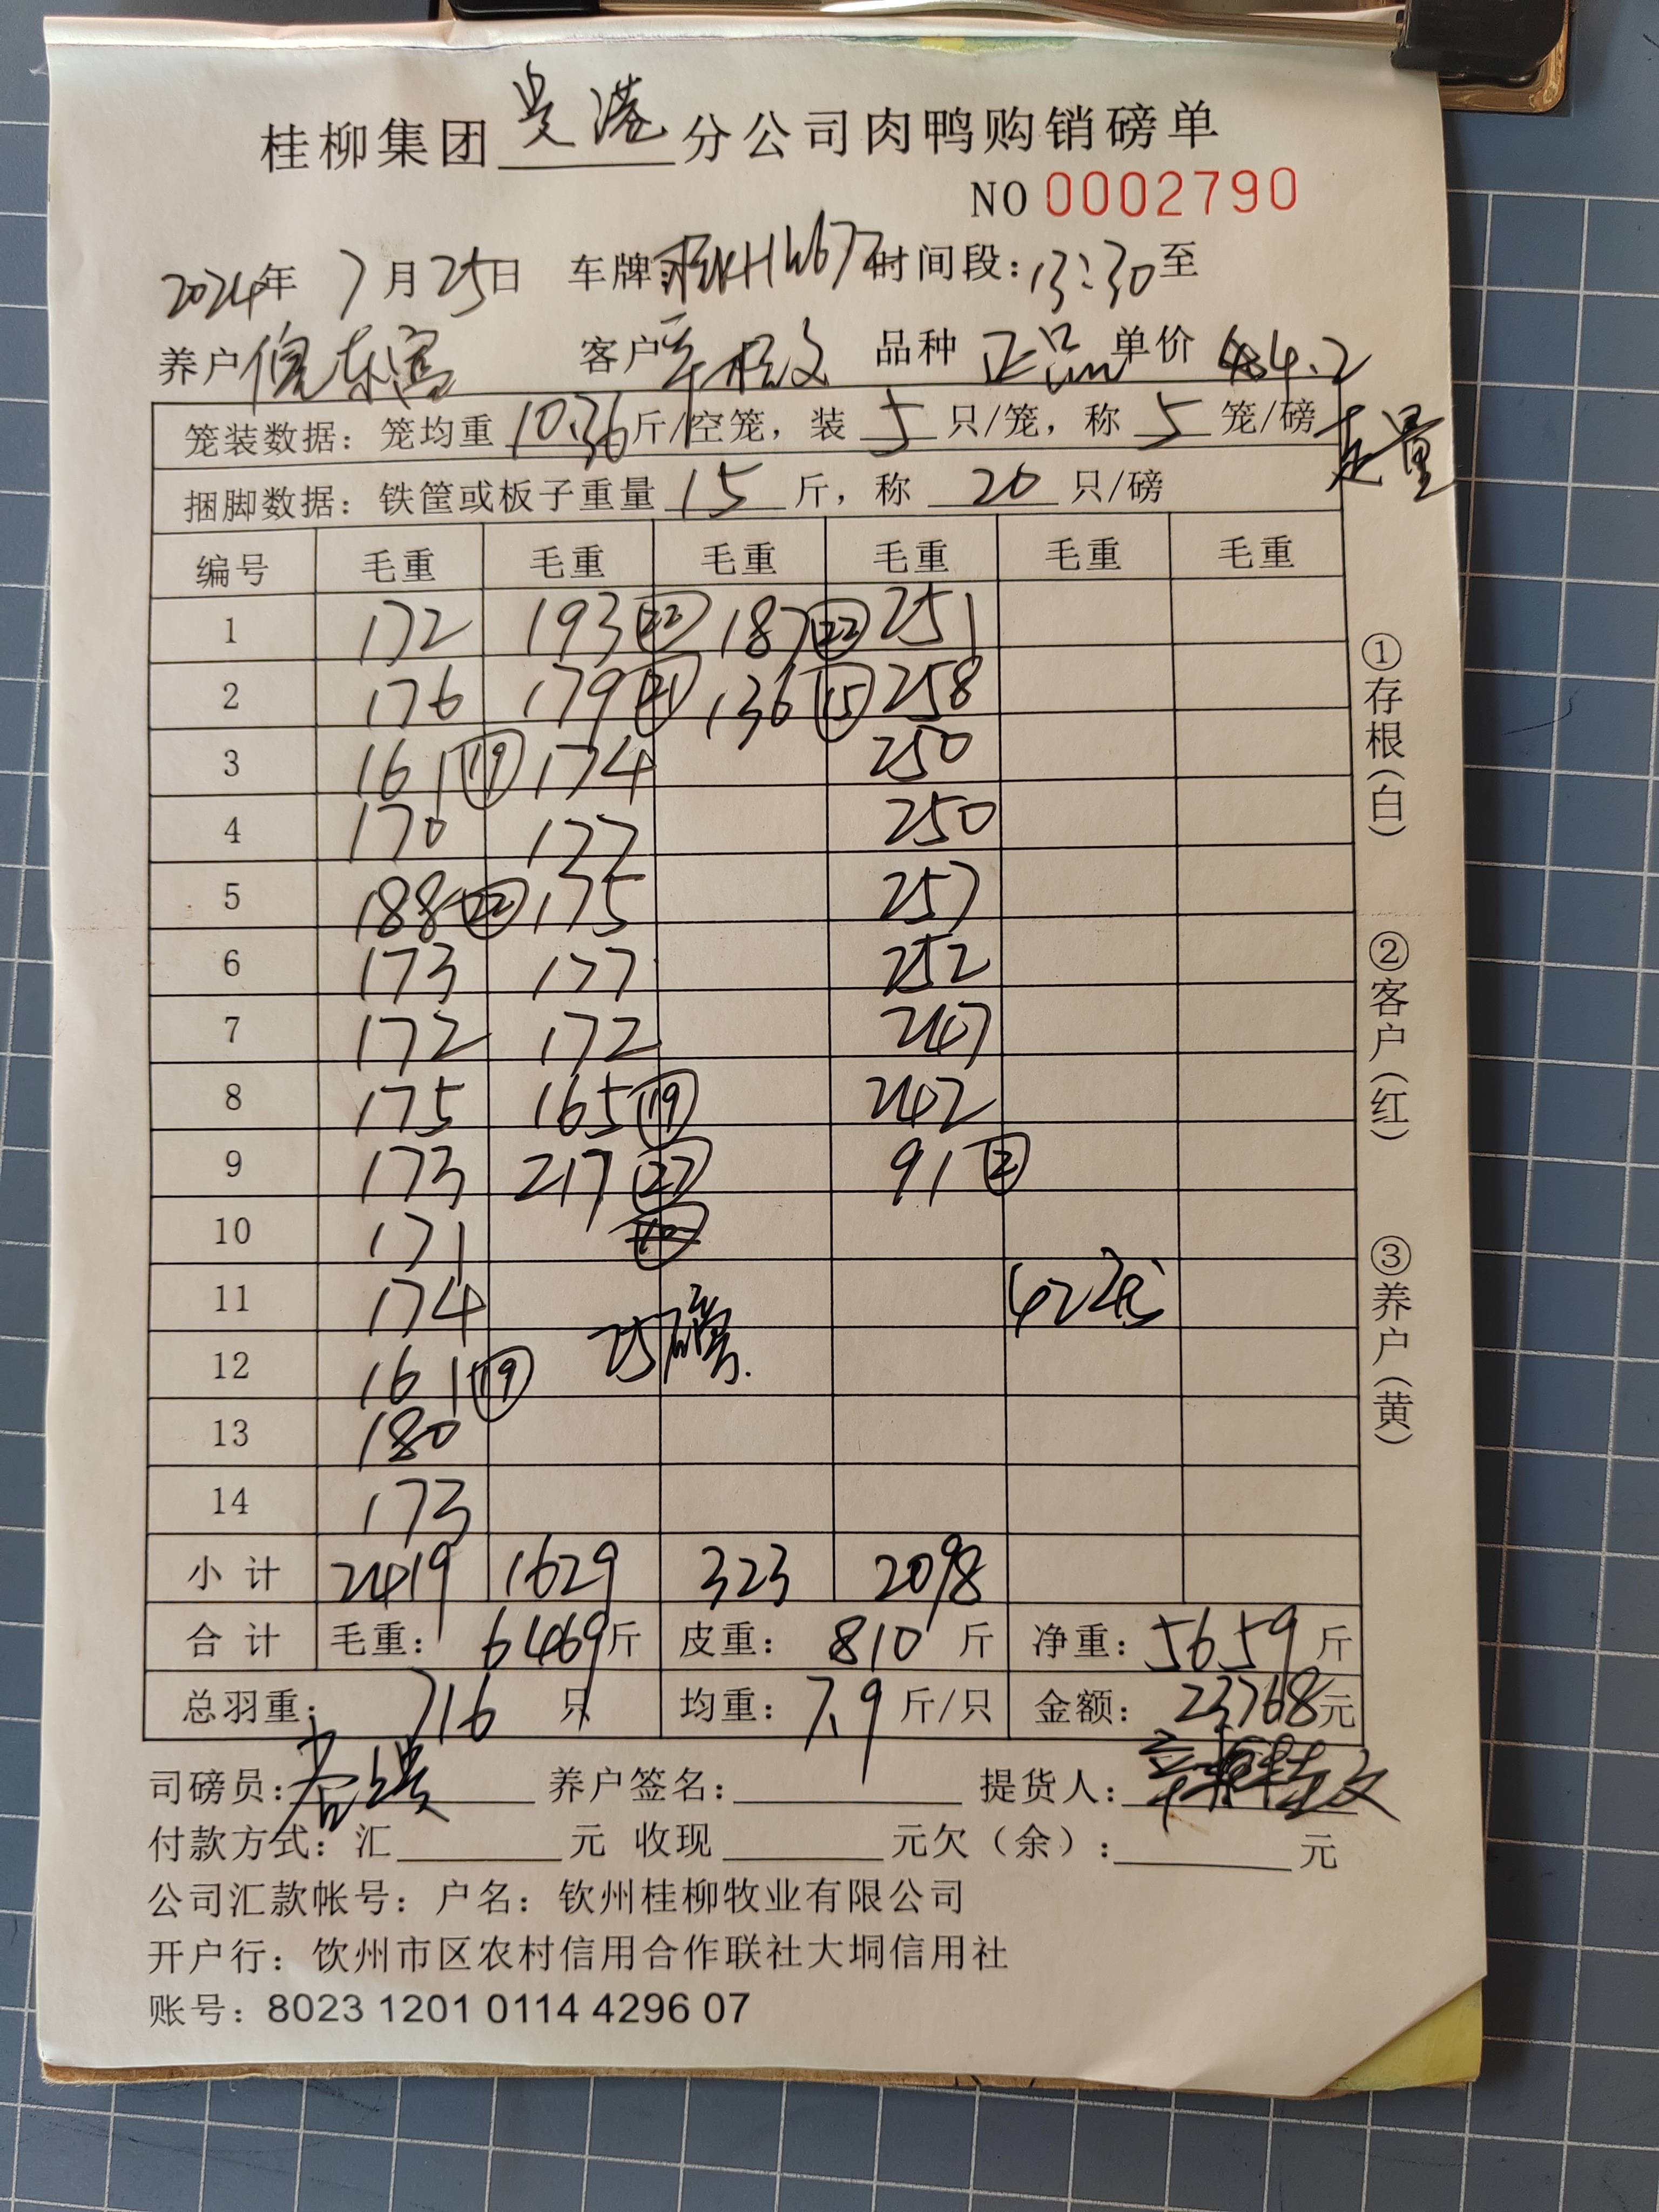 桂柳集团贵港分公司肉鸭购销磅单
NO 0002790
2024年 7月25日 车牌: 时间段:13:30至
养户 客户 品种 正品 单价 4.2
笼装数据: 笼均重 10.36 斤/空笼, 装 5 只/笼, 称 5 笼/磅
走量
捆脚数据: 铁筐或板子重量 15 斤, 称 20 只/磅
编号 毛重 毛重 毛重 毛重 毛重 毛重
1 172 193 (22) 187 (22) 251
2 176 179 (21) 136 (15) 258
3 161 (19) 174 250
4 170 177 250
5 188 (22) 175 257
6 173 177 252
7 172 172 247
8 175 165 (19) 242
9 173 217 (27) 91 (2)
10 171
11 174 42笼
12 161 (19) 25磅.
13 180
14 173
小计 2419 1629 323 2098
合计 毛重: 6469斤 皮重: 810 斤 净重: 5659 斤
总羽重: 716 只 均重: 7.9 斤/只 金额: 23768元
司磅员: 养户签名: 提货人:
付款方式: 汇 元 收现 元欠(余): 元
公司汇款帐号: 户名: 钦州桂柳牧业有限公司
开户行: 饮州市区农村信用合作联社大垌信用社
账号: 8023 1201 0114 4296 07
①存根(白)
②客户(红)
③养户(黄)